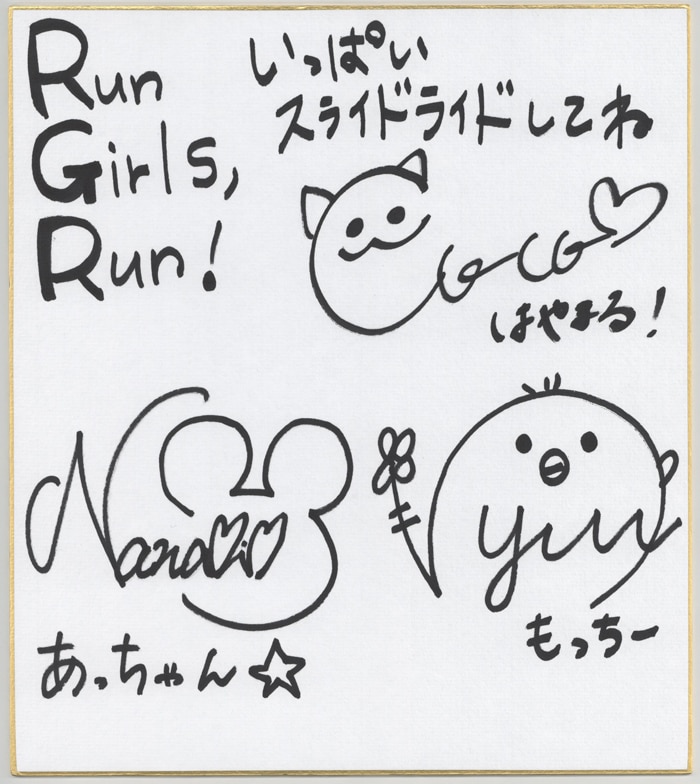 Run
Girls,
Run!
いっぱい
スライドライドしてね
CoCo
はやまる!
Nanami
あっちゃん☆
yuu
もっちー